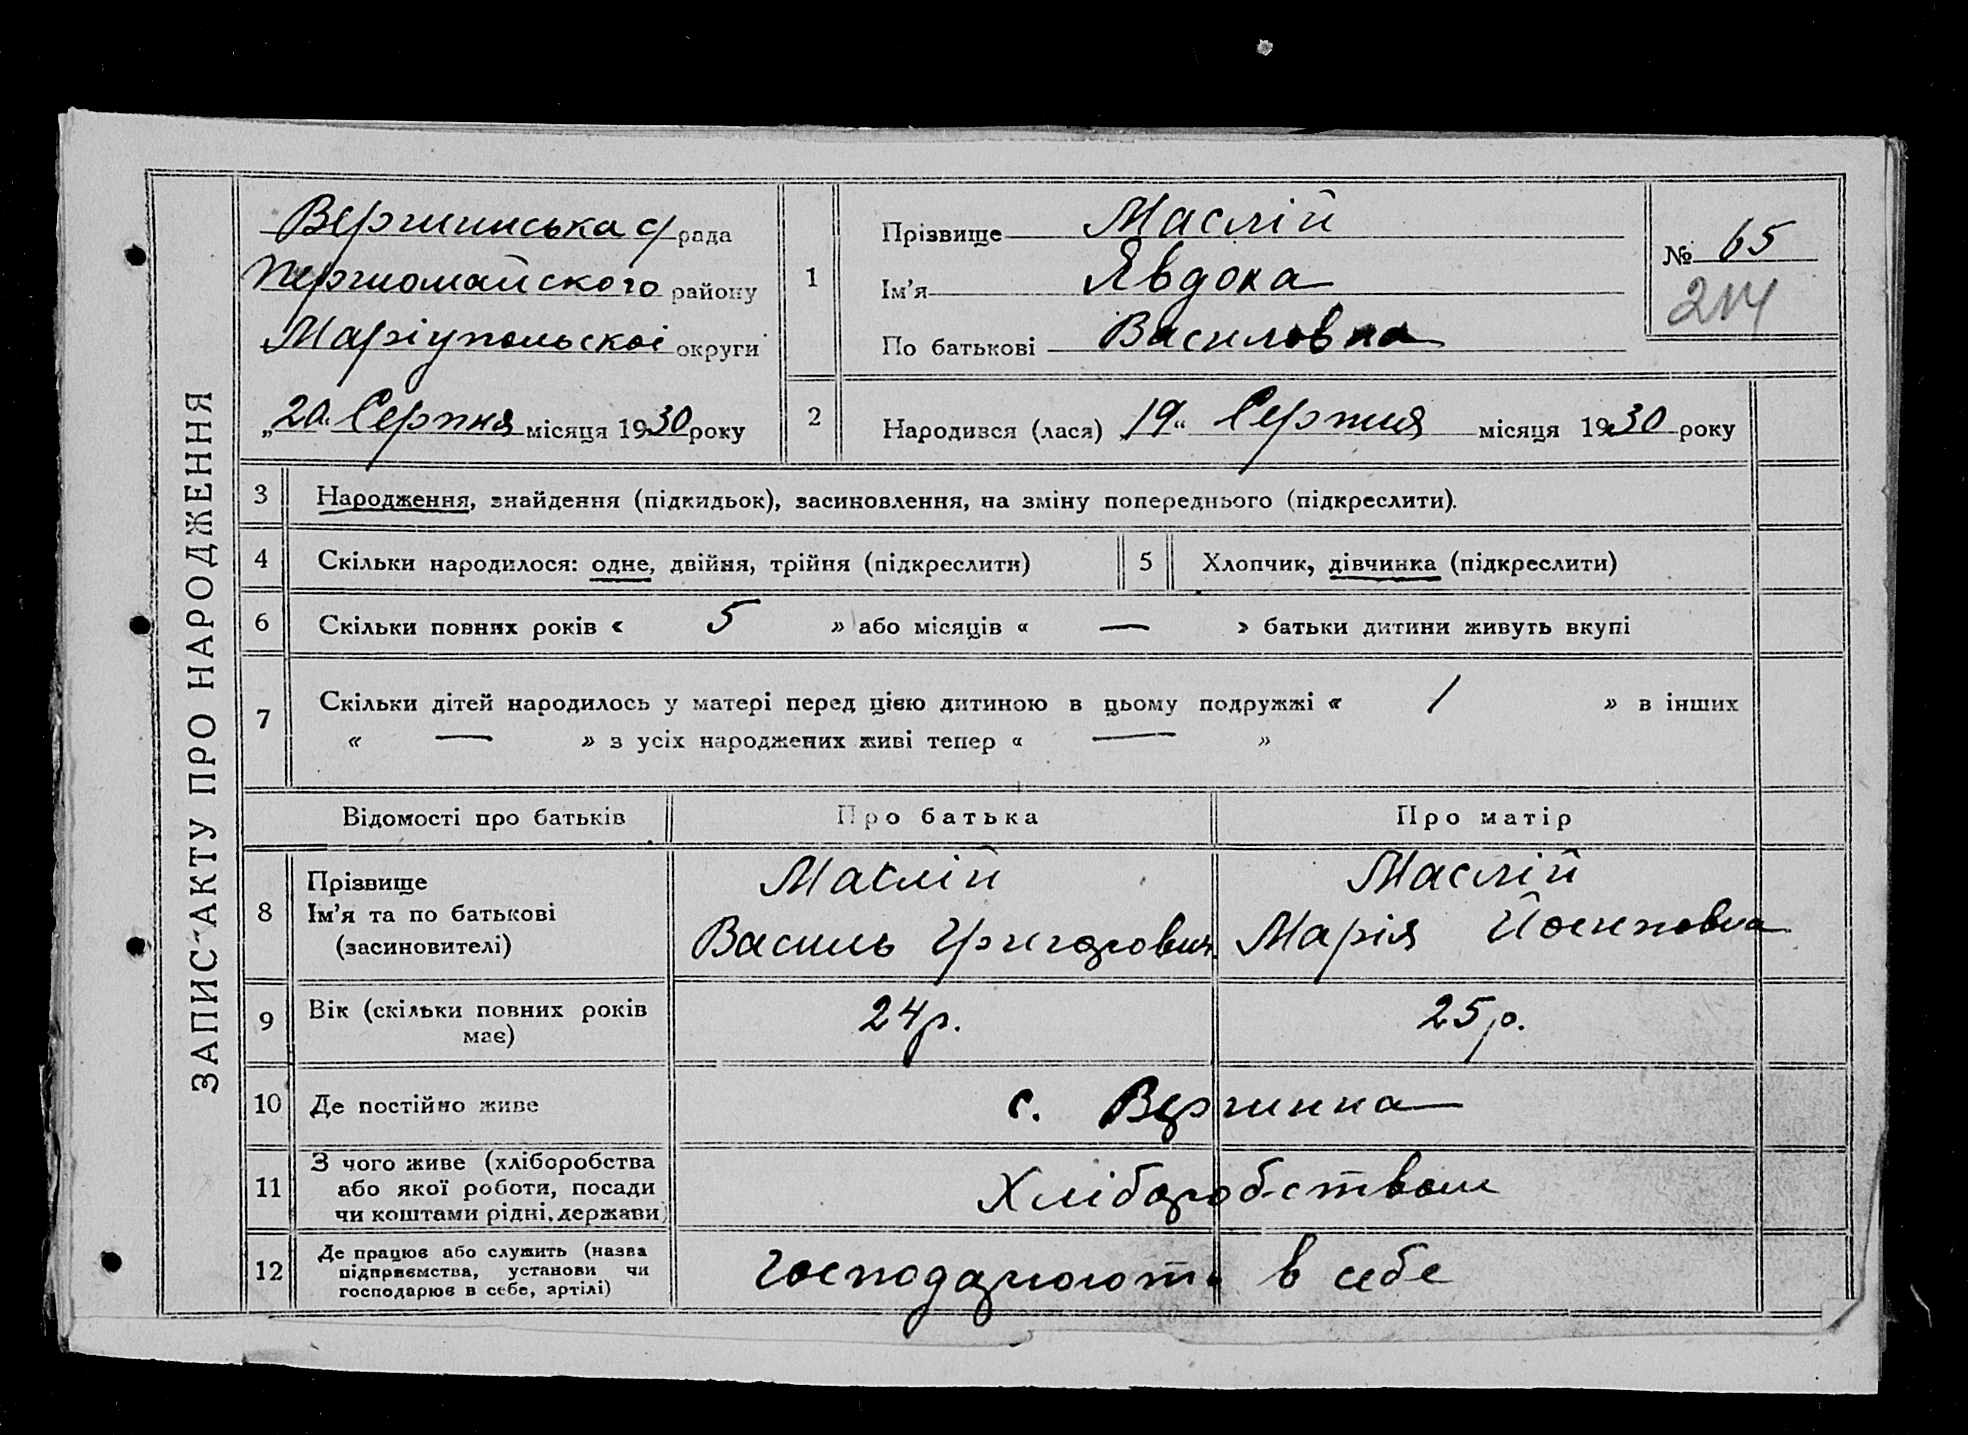 ЗАПИС АКТУ ПРО НАРОДЖЕННЯ
Вершинська с/рада
Першомайского району
Маріупольскоі округи
„20. Серпня місяця 1930 року
1
Прізвище Маслій
Ім'я Явдока
По батькові Василовна
№ 65
214
2
Народився (лася) „19“ Серпня місяця 1930 року
3 Народження, знайдення (підкидьок), засиновлення, на зміну попереднього (підкреслити).
4 Скільки народилося: одне, двійня, трійня (підкреслити)
5 Хлопчик, дівчинка (підкреслити)
6 Скільки повних років « 5 » або місяців « — » батьки дитини живуть вкупі
7 Скільки дітей народилось у матері перед цією дитиною в цьому подружжі « 1 » в інших
« — » з усіх народжених живі тепер « — »
Відомості про батьків Про батька Про матір
8 Прізвище
Ім'я та по батькові
(засиновителі)
Маслій
Василь Григорович
Маслій
Марія Йосиповна
9 Вік (скільки повних років
має)
24 р.
25 р.
10 Де постійно живе с. Вершина
11 З чого живе (хліборобства
або якої роботи, посади
чи коштами рідні, держави)
Хліборобством
12 Де працює або служить (назва
підприємства, установи чи
господарює в себе, артілі)
господарюють в себе